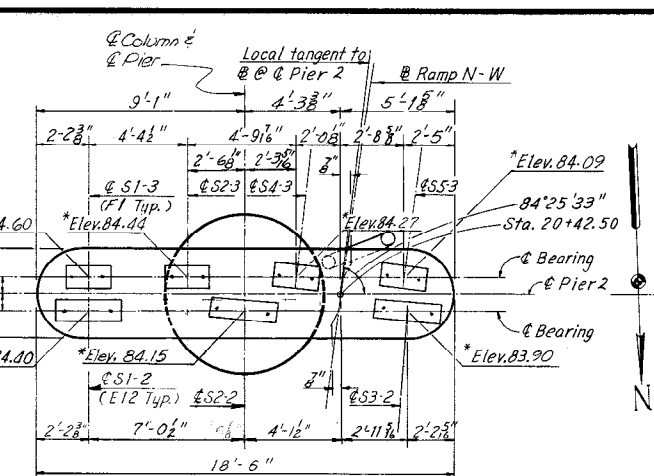 ℄ Column &
℄ Pier
Local tangent to
℄ @ ℄ Pier 2
Ramp N-W
9'-1"
4'-3 3/8"
5'-1 5/8"
2'-2 3/8"
4'-4 1/2"
4'-9 7/16"
2'-0 1/8"
2'-8 5/8"
2'-5"
2'-6 1/8"
2'-3 5/16"
7/8"
*Elev. 84.09
℄ S1-3
(F1 Typ.)
℄ S2-3
℄ S4-3
℄ S5-3
84°25'33"
Sta. 20+42.50
4.60
*Elev. 84.44
*Elev. 84.27
℄ Bearing
℄ Pier 2
℄ Bearing
4.40
*Elev. 84.15
*Elev. 83.90
℄ S1-2
(E12 Typ.)
℄ S2-2
7/8"
℄ S3-2
N
2'-2 3/8"
7'-0 1/2"
4'-1 1/2"
2'-11 5/16"
2'-2 5/16"
18'-6"